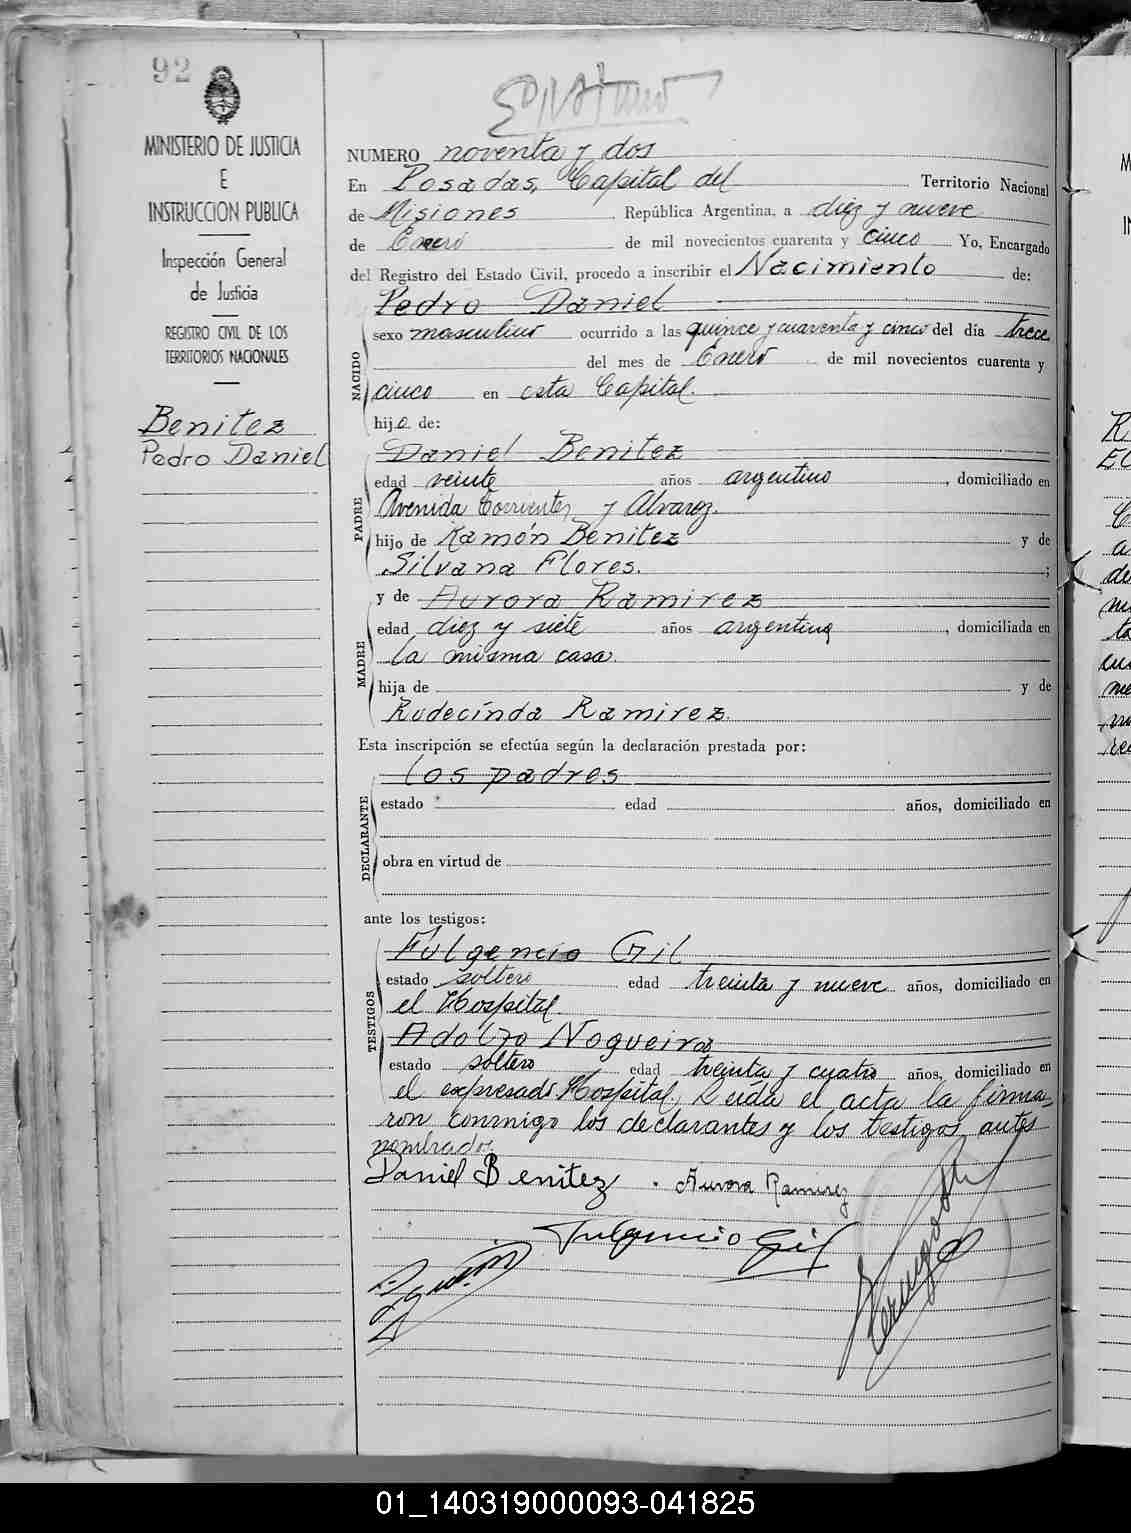 92
MINISTERIO DE JUSTICIA
E
INSTRUCCION PUBLICA
Inspección General
de Justicia
REGISTRO CIVIL DE LOS
TERRITORIOS NACIONALES
Benitez
Pedro Daniel
NUMERO noventa y dos
En Posadas, Capital del Territorio Nacional
de Misiones República Argentina, a diez y nueve
de Enero de mil novecientos cuarenta y cinco Yo, Encargado
del Registro del Estado Civil, procedo a inscribir el Nacimiento de:
Pedro Daniel
sexo masculino ocurrido a las quince y cuarenta y cinco del día trece
del mes de Enero de mil novecientos cuarenta y
cinco en esta Capital.
hijo de:
NACIDO
Daniel Benitez
edad veinte años argentino, domiciliado en
Avenida Corrientes y Alvarez.
hijo de Ramón Benitez y de
Silvana Flores. ;
PADRE
y de Aurora Ramirez
edad diez y siete años argentina, domiciliada en
la misma casa.
hija de y de
Rudecinda Ramirez.
MADRE
Esta inscripción se efectúa según la declaración prestada por:
los padres
estado edad años, domiciliado en
obra en virtud de
DECLARANTE
ante los testigos:
Fulgencio Gil
estado soltero edad treinta y nueve años, domiciliado en
el Hospital.
Adolfo Nogueira
estado soltero edad treinta y cuatro años, domiciliado en
TESTIGOS
el expresado Hospital. Leída el acta la firma-
ron conmigo los declarantes y los testigos antes
nombrados.
Daniel Benitez . Aurora Ramirez
Fulgencio Gil
01_140319000093-041825